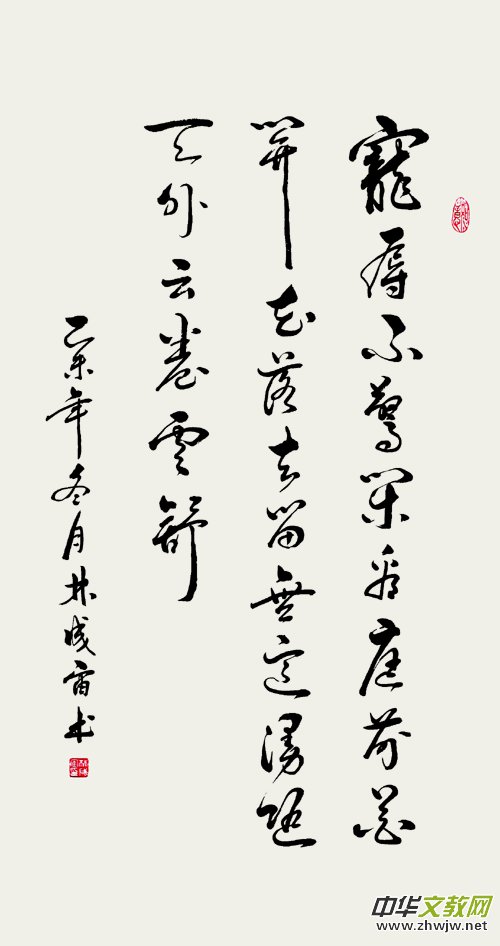 寵辱不驚閑看庭前花
開花落去留無意漫隨
天外云卷雲舒
乙未年冬月林成雷
中华文教网
www.zhwjw.net